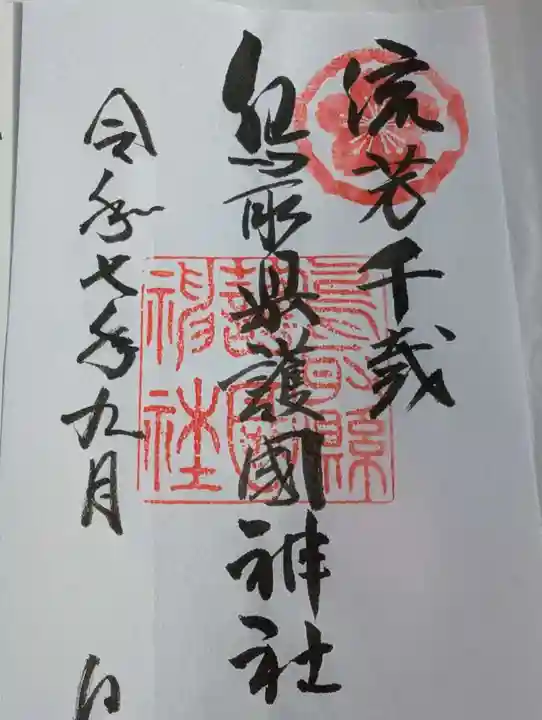 流芳千載
鳥取縣護國神社
令和七年九月
日
鳥取縣
護國
神社